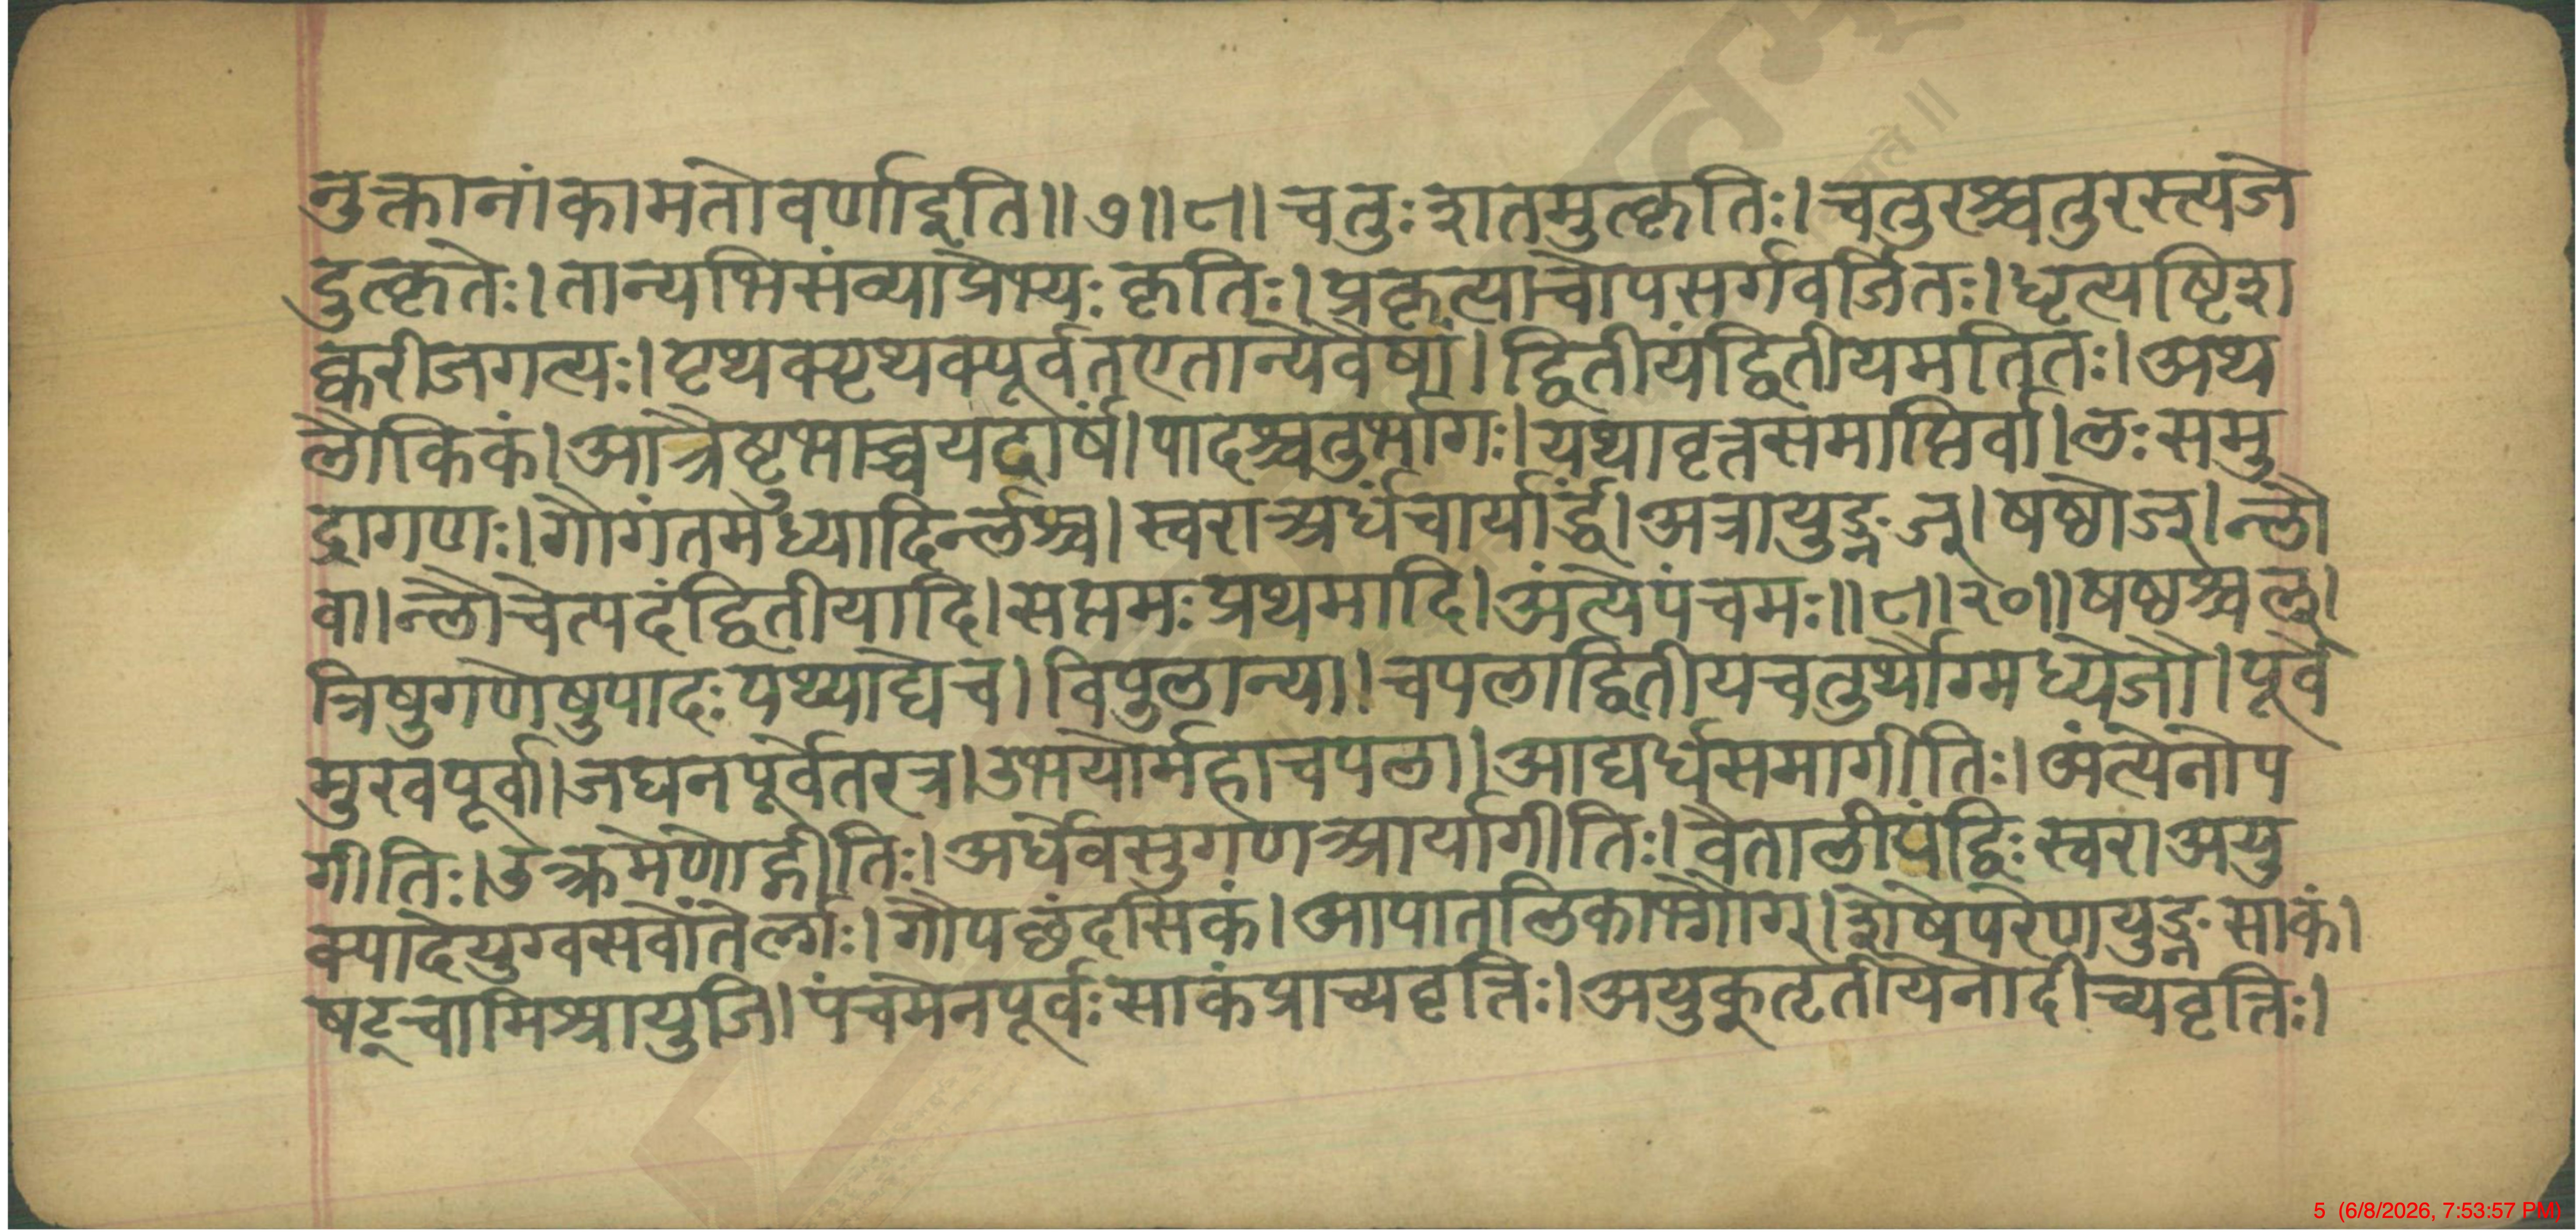 नुक्तानांकामतोवर्णाइति॥७॥८॥चतुःशतमुत्कृतिः।चतुरश्चतुरस्त्यजे
दुत्कृतेः।तान्यभिसंव्याप्रेभ्यःकृतिः।प्रकृत्याचोपसर्गवर्जितः।धृत्यष्टिश
क्वरीजगत्यः।पृथक्पृथक्पूर्वतएतान्येवैषां।द्वितीयंद्वितीयमतितः।अथ
लौकिकं।आत्रैष्टुभाच्चयदार्षं।पादश्चतुर्भागः।यथावृत्तसमाप्तिर्वा।लःसमु
द्रागणः।गौगंतमध्यादिर्न्लश्च।स्वराअर्धंचार्यार्द्धं।अत्रायुङ्नज्।षष्ठोज्।न्लौ
वा।न्लौचेत्पदंद्वितीयादि।सप्तमःप्रथमादि।अंत्येपंचमः॥८॥२०॥षष्ठश्चल्।
त्रिषुगणेषुपादःपथ्याद्येच।विपुलान्या।चपलाद्वितीयचतुर्थौग्मध्येजौ।पूर्वे
मुखपूर्वा।जघनपूर्वेतरत्र।उभयोर्महाचपला।आद्यर्धसमागीतिः।अंत्येनोप
गीतिः।उत्क्रमेणोद्गीतिः।अर्धेवसुगणआर्यागीतिः।वैतालीयंद्विःस्वराअयु
क्पादेयुग्वसवोंतेर्ल्गाः।गौपछंदसिकं।आपातलिकाभ्गौग्।शेषेपरेणयुङ्नसाकं।
षट्चामिश्रायुजि।पंचमेनपूर्वःसाकंप्राच्यवृत्तिः।अयुक्तृतीयेनोदीच्यवृत्तिः।
5 (6/8/2026, 7:53:57 PM)